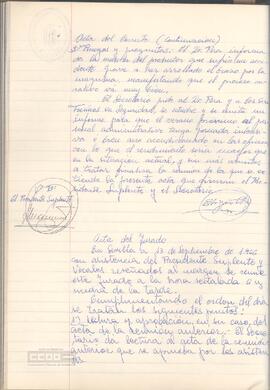 Acta del Jurado (Continuación)
3º Ruegos y preguntas. El Sr. informa
de la marcha del productor que sufrió un acci-
dente grave a ser arrollado el brazo por la
maquina, manifestando que el proceso
va muy bien.
El Secretario pide al Sr. y a los
de Seguridad se estudie y se emita un
informe para que el verano proximo el per-
sonal administrativo tenga jornada intensi-
va o bien aire acondicionado en las oficinas
con lo que el rendimiento seria mayor que
en la situación actual, y sin más asuntos
a tratar finaliza la reunion de la que se ex-
tiende la presente acta que firman el Pre-
sidente Suplente y el Secretario.
El Presidente Suplente
Acta del Jurado
En Sevilla a de Septiembre de
con asistencia del Presidente Suplente y
Vocales reseñados al margen se reune
este Jurado a la hora señalada
media de la tarde.
Cumplimentando el orden del dia
se tratan los siguientes puntos:
1º Lectura y aprobación, en su caso, del
acta de la reunion anterior. El Secre-
tario da lectura al acta de la reunion
anterior que se aprueba por los asisten-
tes.
CCOO